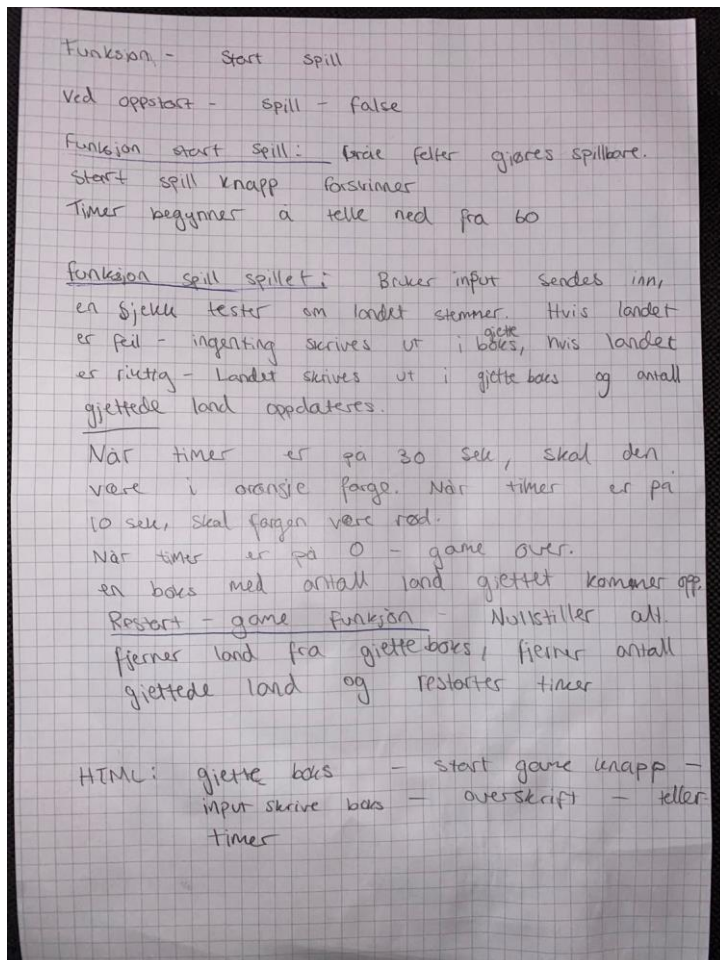 Funksjon - Start spill
Ved oppstart - spill - false
Funksjon start spill: felter gjøres spillbare.
Start spill knapp forsvinner
Timer begynner å telle ned fra 60
funksjon spill spillet: Bruker input sendes inn,
en sjekk tester om landet stemmer. Hvis landet
er feil - ingenting skrives ut i gjette boks, hvis landet
er riktig - Landet skrives ut i gjette boks og antall
gjettede land oppdateres.
Når timer er på 30 sek, skal den
være i oransje farge. Når timer er på
10 sek, skal fargen være rød.
Når timer er på 0 - game over.
en boks med antall land gjettet kommer opp.
Restart - game funksjon - Nullstiller alt.
fjerner land fra gjette boks, fjerner antall
gjettede land og restarter timer
HTML: gjette boks - start game knapp -
input skrive boks - overskrift - teller
timer